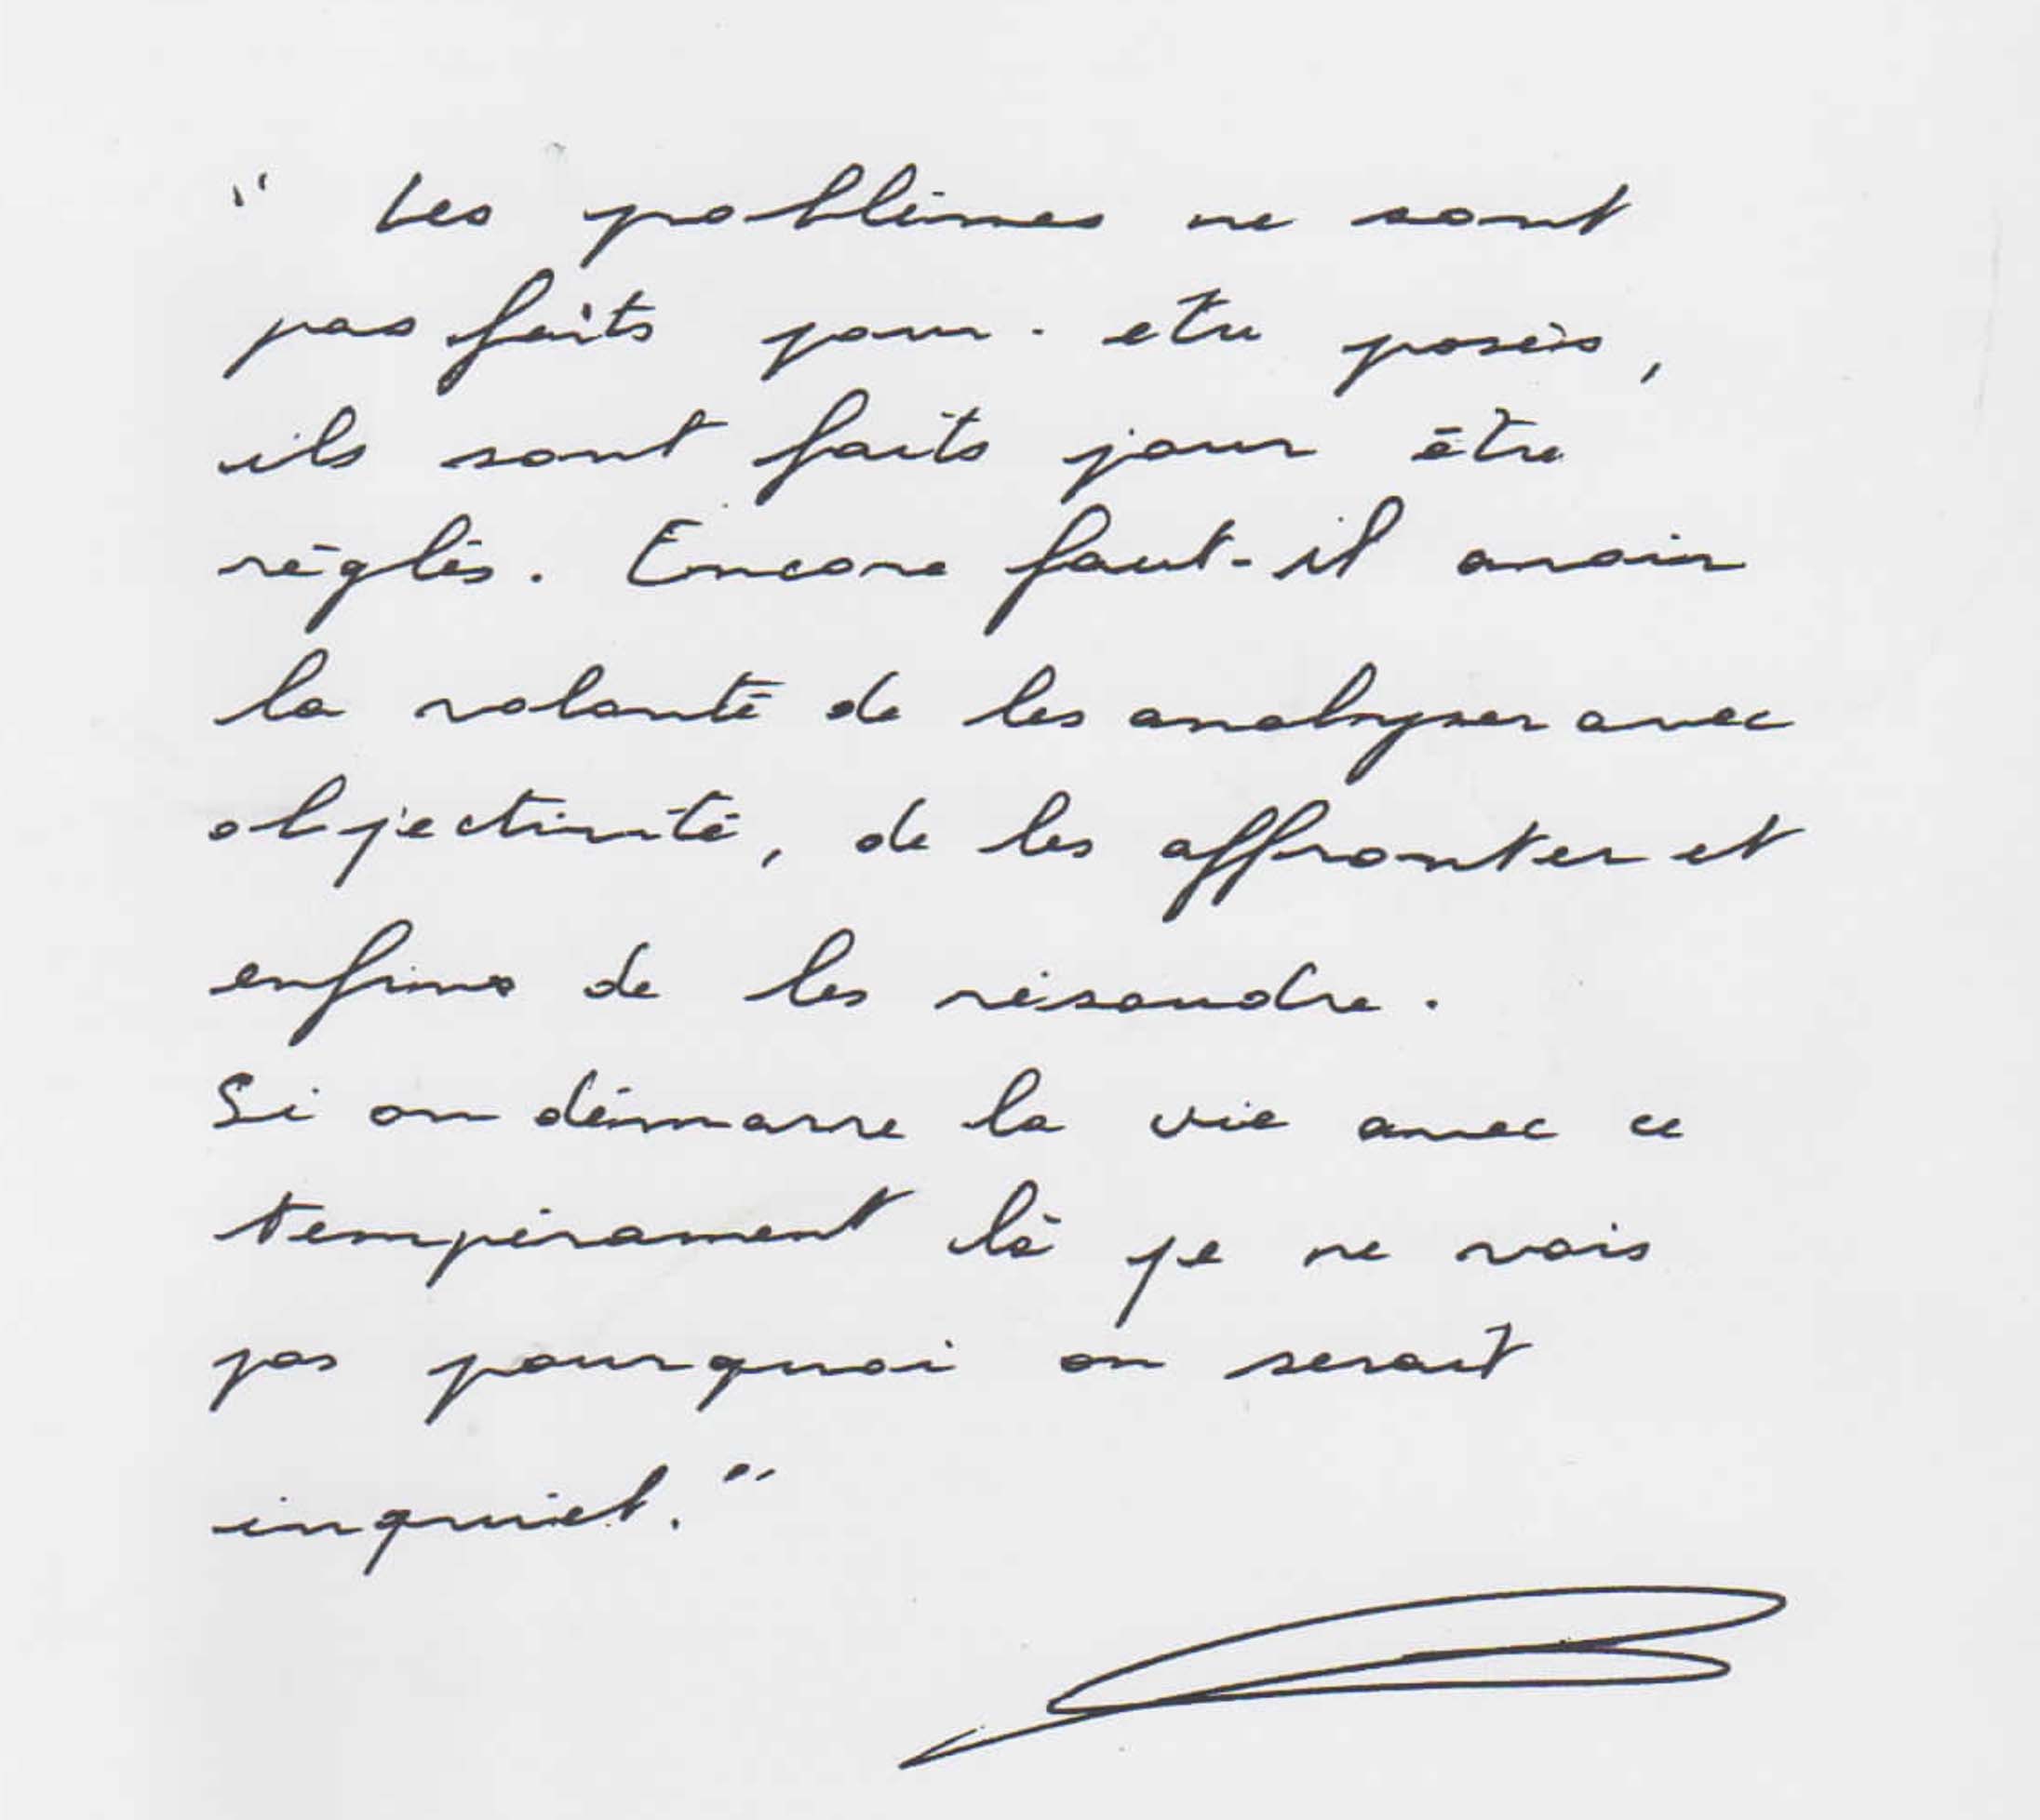 " Les problèmes ne sont
pas faits pour être posés,
ils sont faits pour être
réglés. Encore faut-il avoir
la volonté de les analyser avec
objectivité, de les affronter et
enfin de les résoudre.
Si on démarre la vie avec ce
tempérament là je ne vois
pas pourquoi on serait
inquiet."